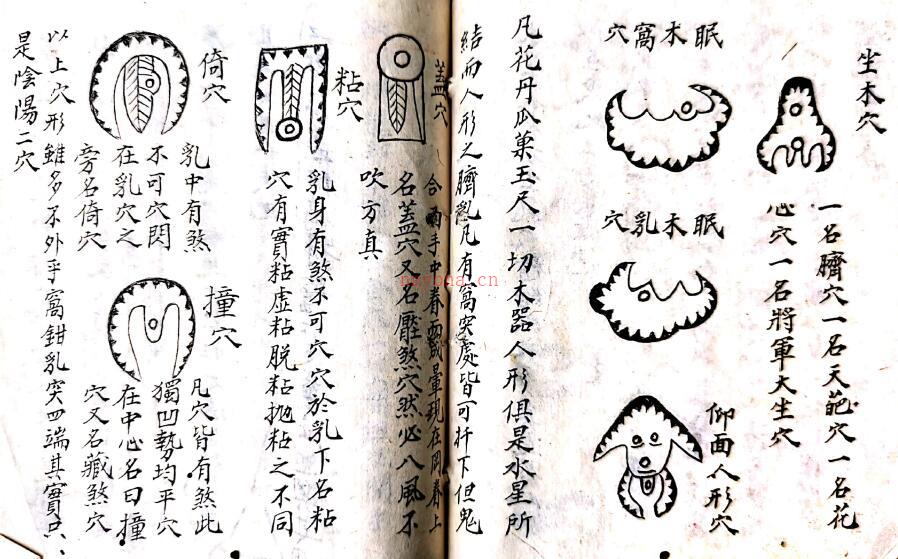 坐木穴
一名臍穴一名天葩穴一名花
心穴一名將軍大坐穴
眠木窩穴
眠木乳穴
仰面人形穴
凡花丹瓜菓玉尺一切木器人形俱是水星所
結而人形之臍乳凡有窩突處皆可扦下但鬼
蓋穴
合兩手中春雨暈現在周春上
名蓋穴又名壓煞穴然必八風不
吹方真
粘穴
乳身有煞不可穴穴於乳下名粘
穴有實粘虛粘脫粘拋粘之不同
倚穴
乳中有煞
不可穴閃
在乳穴之
旁名倚穴
撞穴
凡穴皆有煞此
獨凹勢均平穴
在中心名曰撞
穴又名藏煞穴
以上穴形雖多不外乎窩鉗乳突四端其實只
是陰陽二穴